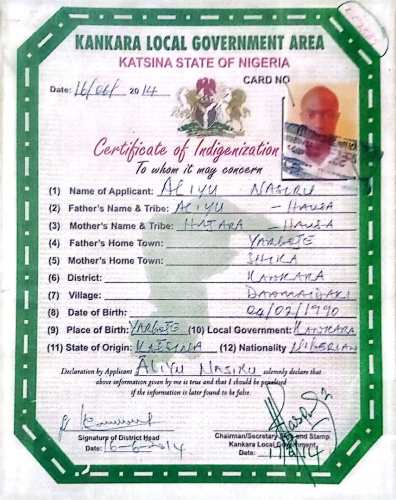 KANKARA LOCAL GOVERNMENT AREA
KATSINA STATE OF NIGERIA
CARD NO
Date: 16/06/ 2014
Certificate of Indigenization
To whom it may concern
(1) Name of Applicant: ALIYU NASIRU
(2) Father's Name & Tribe: ALIYU - HAUSA
(3) Mother's Name & Tribe: - HAUSA
(4) Father's Home Town: YARGOJE
(5) Mother's Home Town: SHIRA
(6) District: KANKARA
(7) Village: DANMAIDAKI
(8) Date of Birth: 04/02/1990
(9) Place of Birth: YARGOJE (10) Local Government: KANKARA
(11) State of Origin: KATSINA (12) Nationality NIGERIAN
Declaration by Applicant ALIYU NASIRU solemnly declare that
above information given by me is true and that I should be penalised
if the information is later found to be false.
Signature of District Head
Date: 16-6-2014
Chairman/Secretary Sign and Stamp
Kankara Local Government
Date: